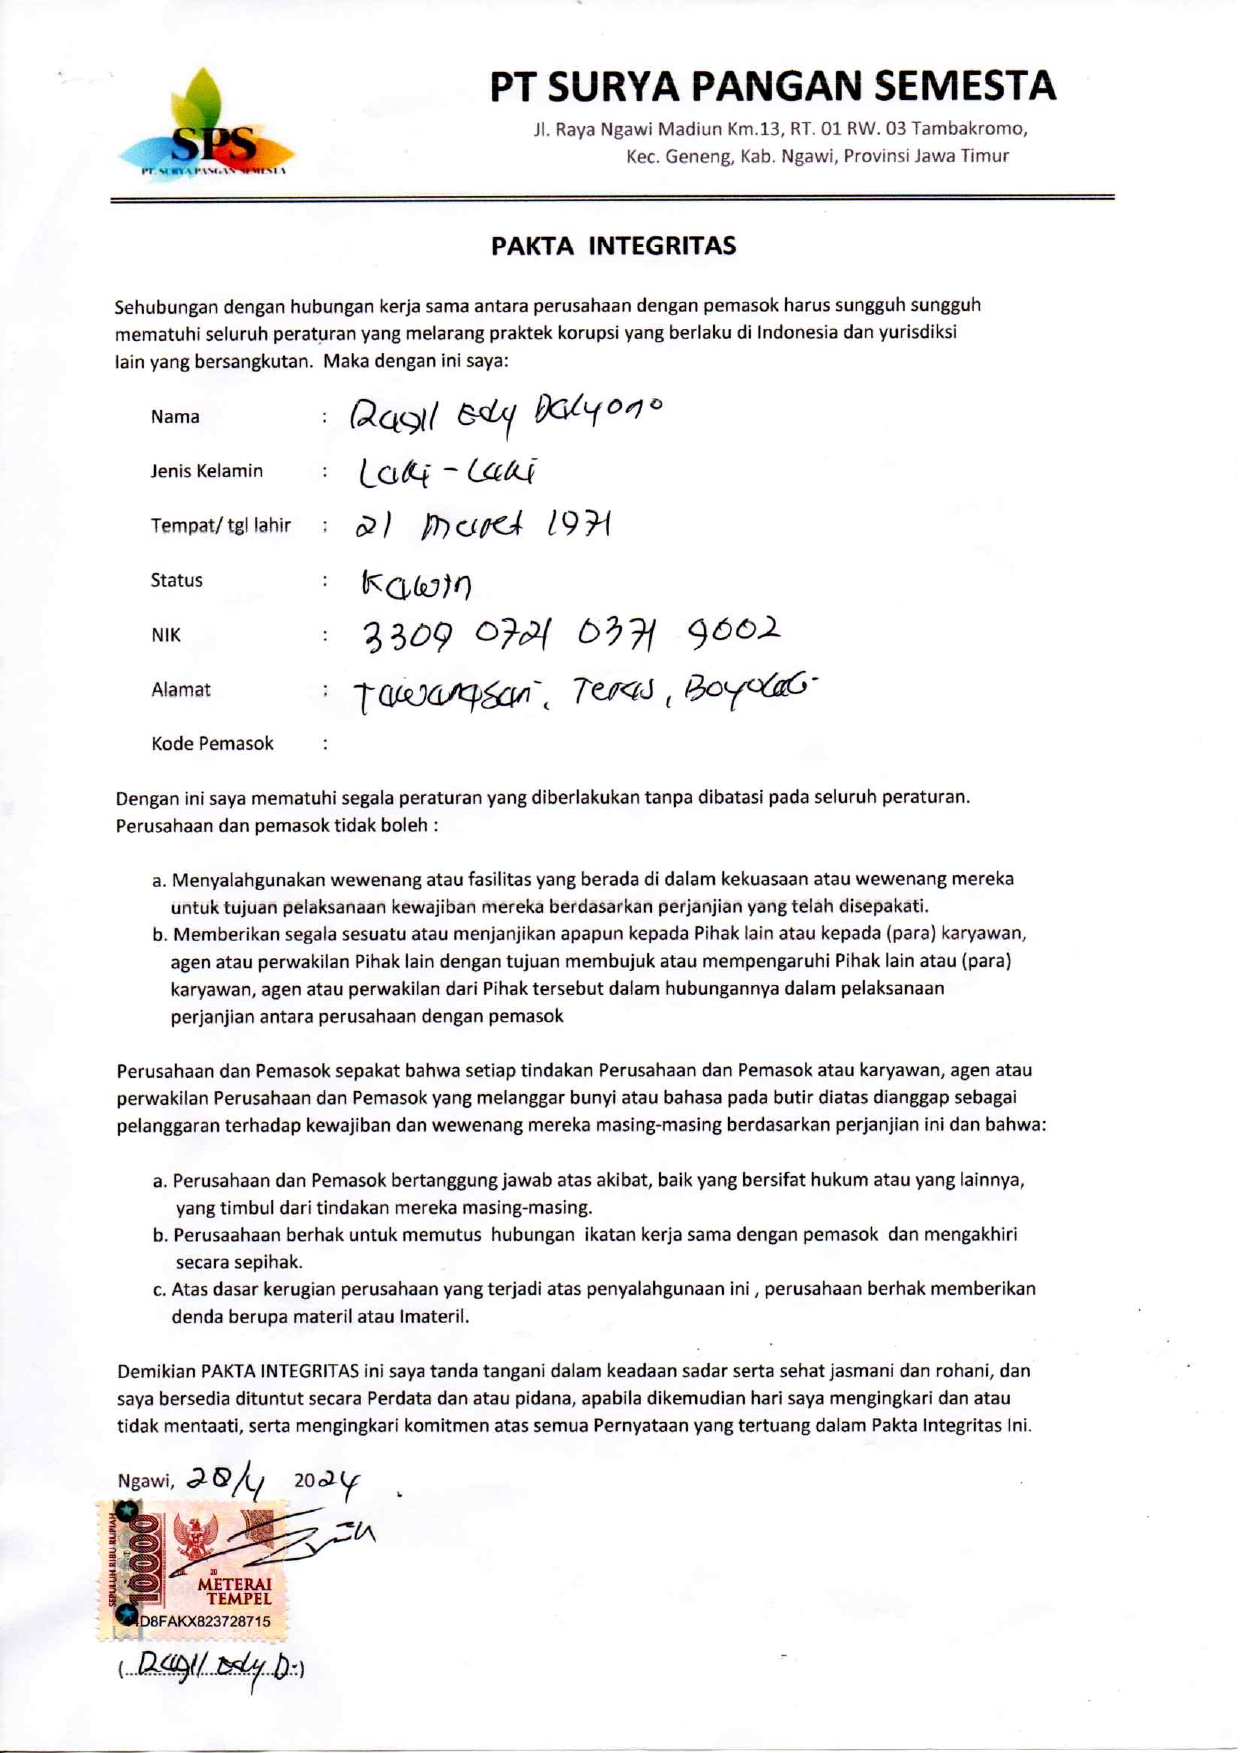 SPS
PT. SURYA PANGAN SEMESTA
PT SURYA PANGAN SEMESTA
Jl. Raya Ngawi Madiun Km.13, RT. 01 RW. 03 Tambakromo,
Kec. Geneng, Kab. Ngawi, Provinsi Jawa Timur
PAKTA INTEGRITAS
Sehubungan dengan hubungan kerja sama antara perusahaan dengan pemasok harus sungguh sungguh
mematuhi seluruh peraturan yang melarang praktek korupsi yang berlaku di Indonesia dan yurisdiksi
lain yang bersangkutan. Maka dengan ini saya:
Nama : Ragil Edy Dalyono
Jenis Kelamin : Laki-Laki
Tempat/ tgl lahir : 21 Maret 1971
Status : Kawin
NIK : 3309 0721 0371 9002
Alamat : Tawangsari, Teras, Boyolali
Kode Pemasok :
Dengan ini saya mematuhi segala peraturan yang diberlakukan tanpa dibatasi pada seluruh peraturan.
Perusahaan dan pemasok tidak boleh :
a. Menyalahgunakan wewenang atau fasilitas yang berada di dalam kekuasaan atau wewenang mereka
untuk tujuan pelaksanaan kewajiban mereka berdasarkan perjanjian yang telah disepakati.
b. Memberikan segala sesuatu atau menjanjikan apapun kepada Pihak lain atau kepada (para) karyawan,
agen atau perwakilan Pihak lain dengan tujuan membujuk atau mempengaruhi Pihak lain atau (para)
karyawan, agen atau perwakilan dari Pihak tersebut dalam hubungannya dalam pelaksanaan
perjanjian antara perusahaan dengan pemasok
Perusahaan dan Pemasok sepakat bahwa setiap tindakan Perusahaan dan Pemasok atau karyawan, agen atau
perwakilan Perusahaan dan Pemasok yang melanggar bunyi atau bahasa pada butir diatas dianggap sebagai
pelanggaran terhadap kewajiban dan wewenang mereka masing-masing berdasarkan perjanjian ini dan bahwa:
a. Perusahaan dan Pemasok bertanggung jawab atas akibat, baik yang bersifat hukum atau yang lainnya,
yang timbul dari tindakan mereka masing-masing.
b. Perusaahaan berhak untuk memutus hubungan ikatan kerja sama dengan pemasok dan mengakhiri
secara sepihak.
c. Atas dasar kerugian perusahaan yang terjadi atas penyalahgunaan ini , perusahaan berhak memberikan
denda berupa materil atau Imateril.
Demikian PAKTA INTEGRITAS ini saya tanda tangani dalam keadaan sadar serta sehat jasmani dan rohani, dan
saya bersedia dituntut secara Perdata dan atau pidana, apabila dikemudian hari saya mengingkari dan atau
tidak mentaati, serta mengingkari komitmen atas semua Pernyataan yang tertuang dalam Pakta Integritas Ini.
Ngawi, 20/4 2024
SEPULUH RIBU RUPIAH
10000
20
METERAI
TEMPEL
D8FAKX823728715
(Ragil Edy D.)